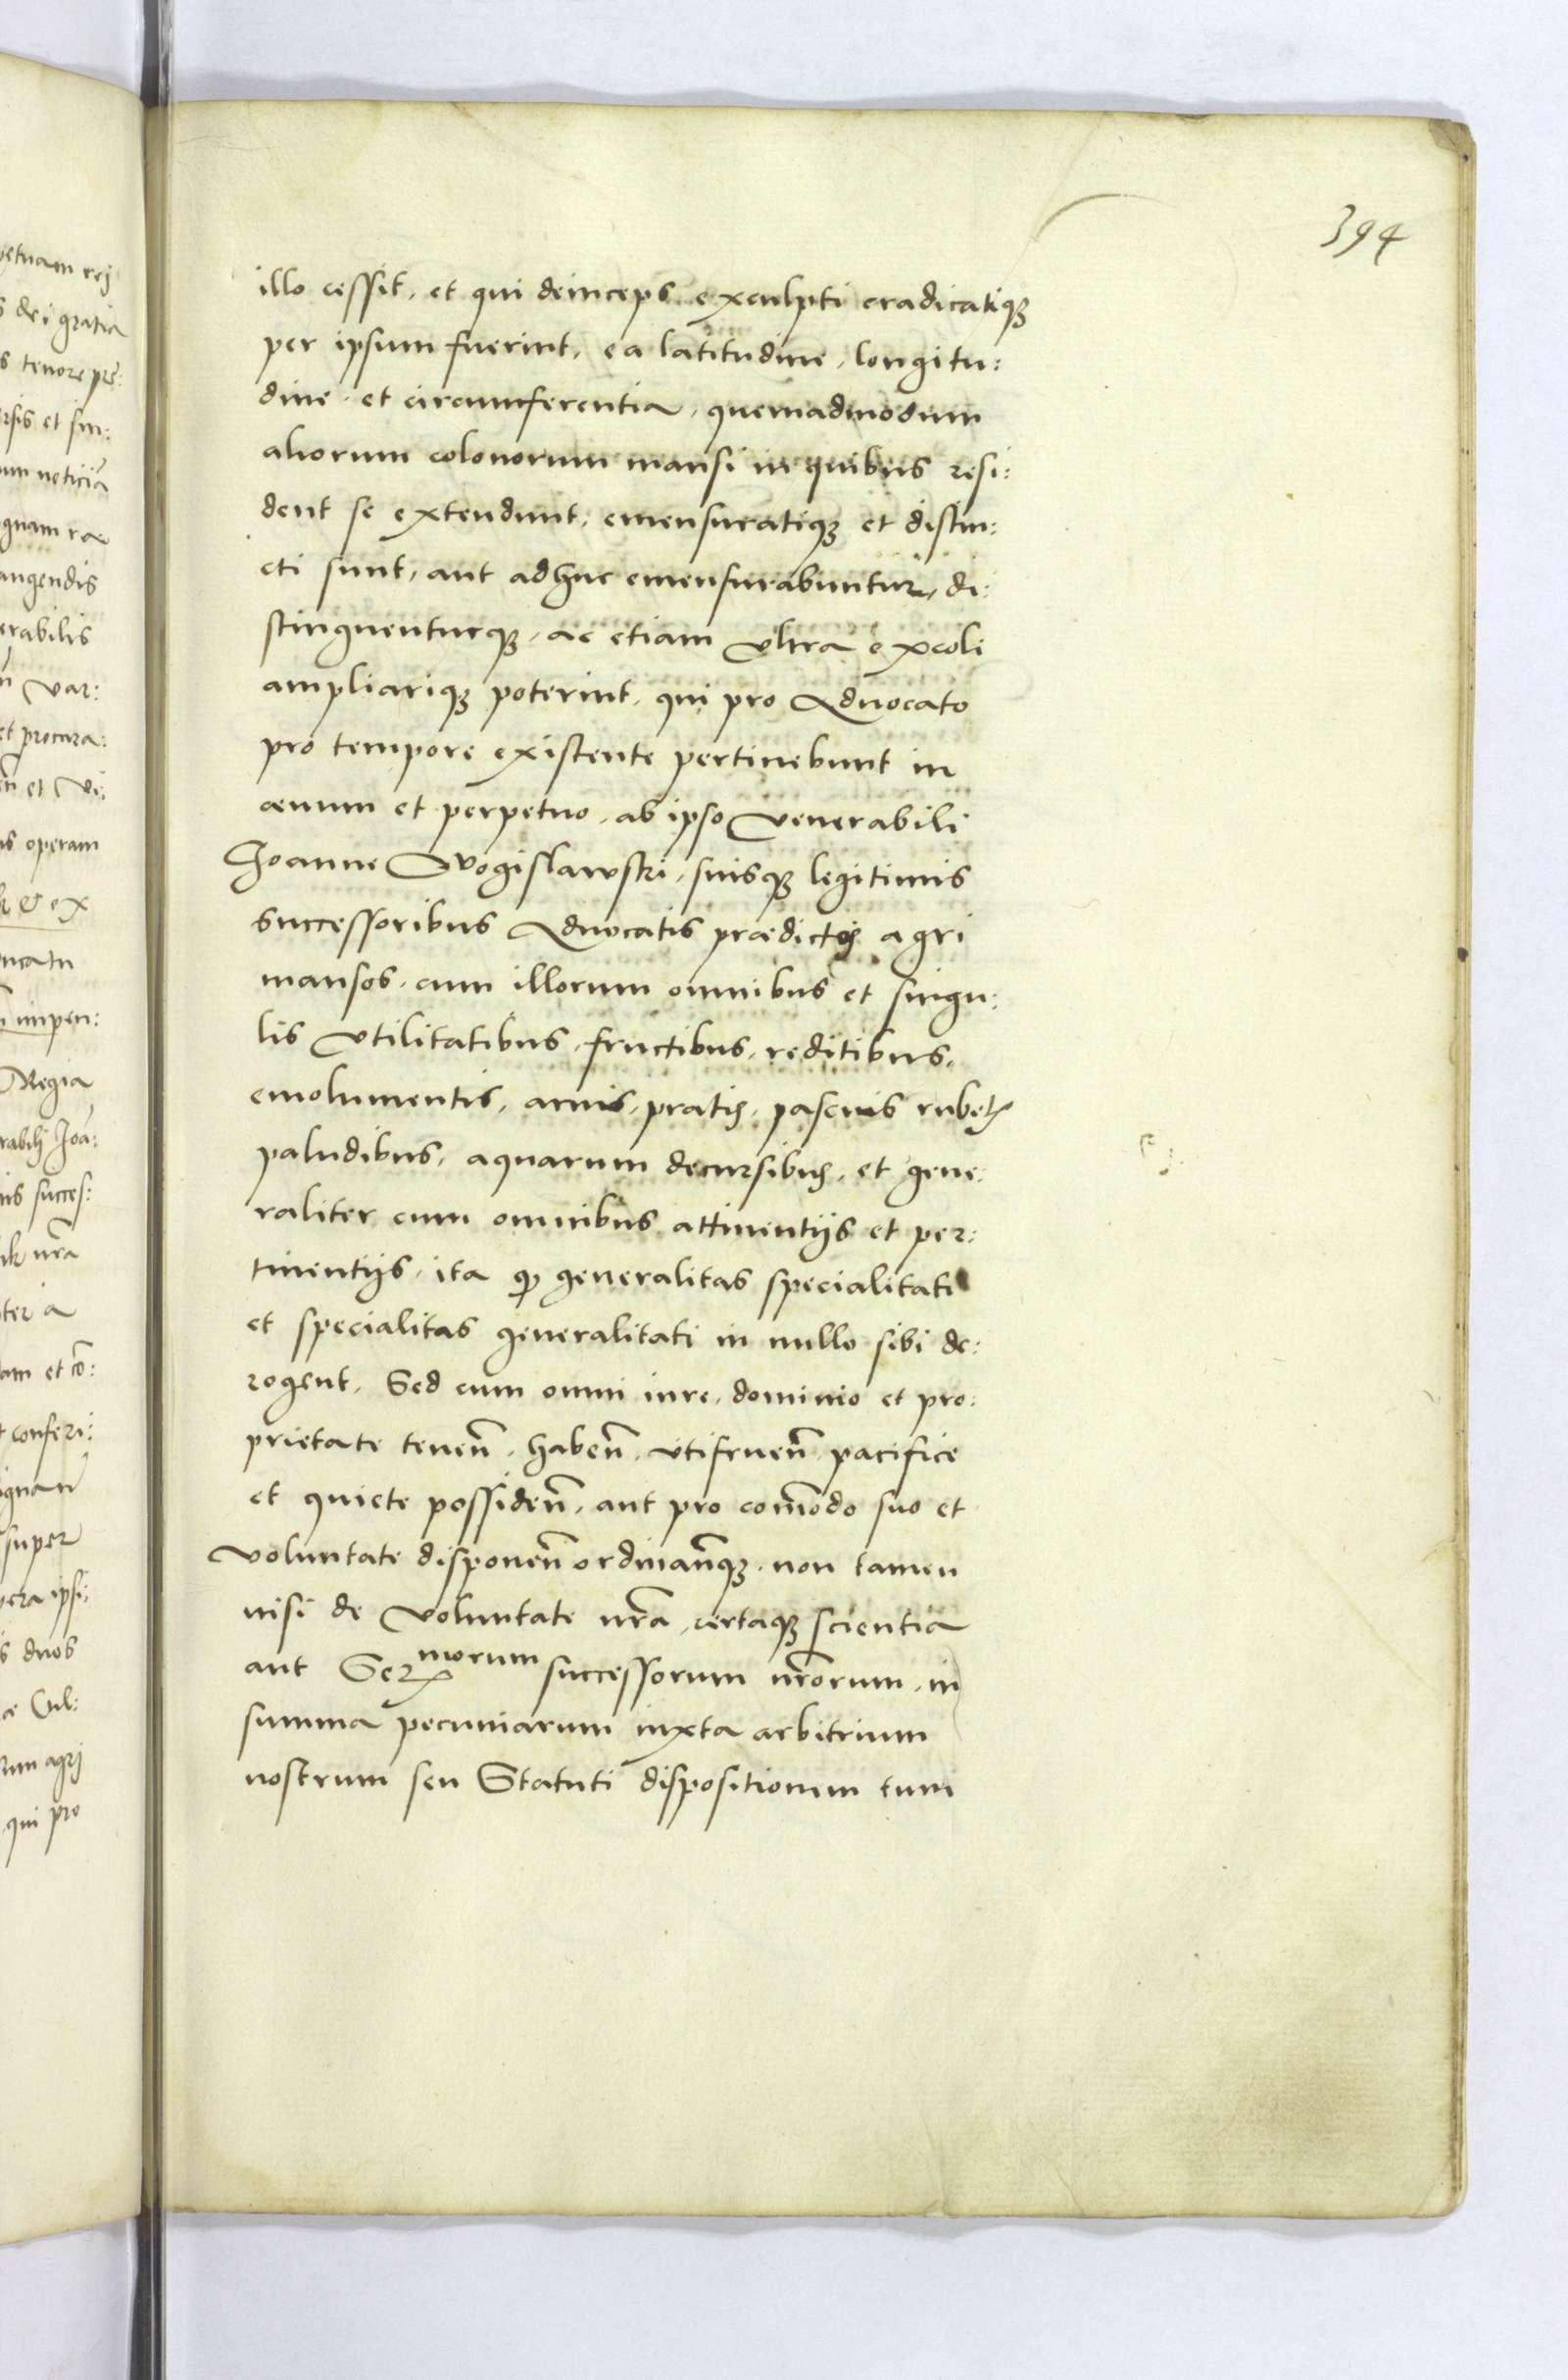 394
illo cessit, et qui deinceps exculpti eradicatiqꝫ
per ipsum fuerint, ea latitudine, longitu:
dine et circumferentia, quemadmodum
aliorum colonorum mansi in quibus resi:
dent se extendunt, emensuratiqꝫ et distin:
cti sunt, aut adhuc emensurabuntur, di:
stinguenturqꝫ, ac etiam vltra excoli
ampliariqꝫ poterint, qui pro Aduocato
pro tempore existente pertinebunt in
æuum et perpetuo, ab ipso Venerabili
Joanne Wogislawski, suisqꝫ legitimis
successoribus Aduocatis prædictis agri
mansos, cum illorum omnibus et singu:
lis vtilitatibus, fructibus, reditibus,
emolumentis, aruis, pratis, pascuis rubetis
paludibus, aquarum decursibus, et gene:
raliter cum omnibus attinentijs et per:
tinentijs, ita qꝫ generalitas specialitati
et specialitas generalitati in nullo sibi de:
rogent, Sed cum omni iure, dominio et pro:
prietate teneñ, habeñ, vtifrueñ pacifice
et quiete possideñ, aut pro com̃odo suo et
voluntate disponeñ ordinañqꝫ, non tamen
nisi de voluntate nr̃a, certaqꝫ scientia
aut Ser morum successorum nr̃orum, in
summa pecuniarum iuxta arbitrium
nostrum seu Statuti dispositionem tum
petuam rej
dei gratia
s tenore prę:
rsis et sin:
um noticiã
angendis
erabilis
Var:
et procura:
et Vi:
operam
impen:
Regia
rabilj Joã:
succes:
nr̃a
ter a
am et cõ:
conferi:
super
ipsi:
duos
Vil:
agrj
qui pro